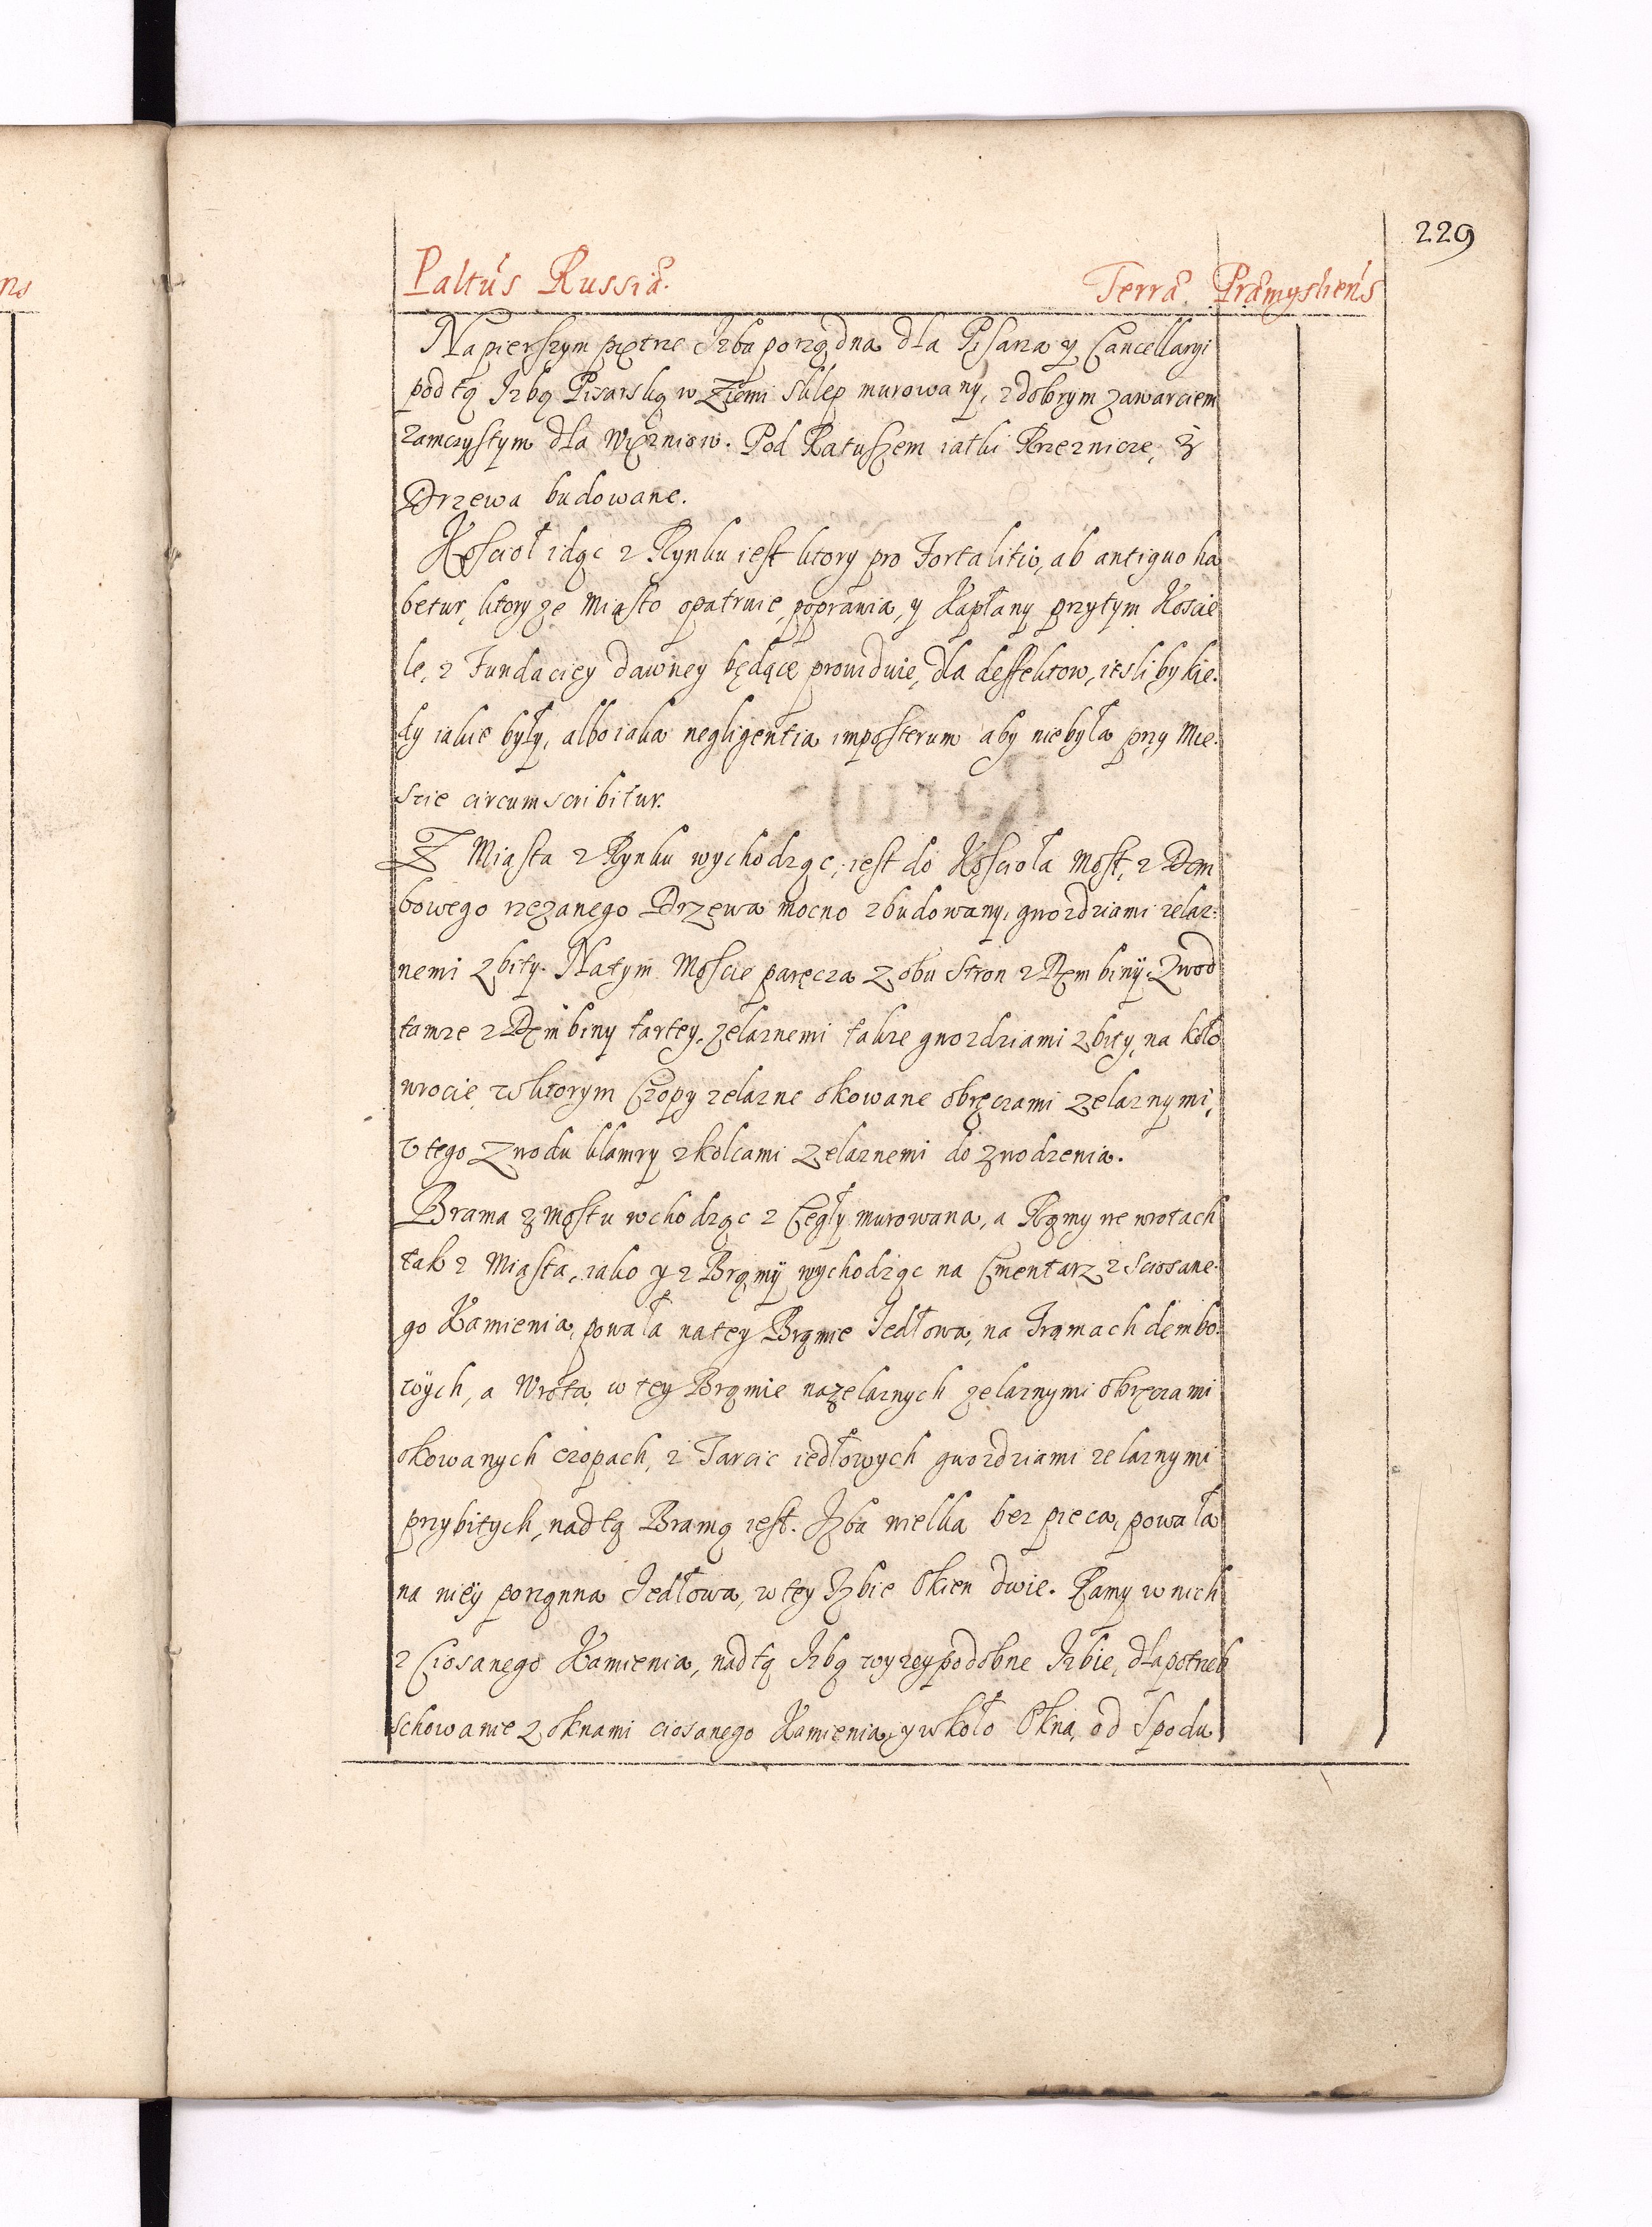 229
Paltus Russiæ. Terræ Præmysliens
Na pierszym piętrze Izba porządna dla Pisarza y Cancellaryi
pod tą Izbą Pisarską w Ziemi sklep murowany, z dobrym zawarciem
zamczystym dla Więzniow. Pod Ratuszem iatki Rzeznicze, z
Drzewa budowane.
Kościoł idąc z Rynku iest ktory pro Fortalitio, ab antiquo ha
betur, ktory ze Miasto opatruie, poprawia, y Kapłany przytym Koscie
le, z Fundaciey dawney będące prowiduie, dla deffektow, iesliby kie.
dy iakie były, albo iaka negligentia imposterum aby niebyła przy Mie.
scie circumscribitur.
Z Miasta z Rynku wychodząc, iest do Kościoła Most, z Dem
bowego rzezanego Drzewa mocno zbudowany, gwozdziami zelaz:
nemi zbity. Natym Moscie paręcza z obu Stron z Dembiny. Zwod
tamze z Dembiny tartey, zelaznemi takze gwozdziami zbity, na koło
wrocie w ktorym Czopy zelazne okowane obręczami zelaznymi,
v tego Zwodu klamry z kolcami zelaznemi do zwodzenia.
Brama z mostu wchodząc z Cegły murowana, a Ramy we wrotach
tak z Miasta, iako y z Bramy wychodząc na Cmentarz z Sciosane.
go Kamienia, powała natey Bramie Jedłowa, na Tramach dembo.
wych, a Wrota w tey Bramie nazelaznych zelaznymi obręczami
okowanych czopach, z Tarcic iedłowych gwozdziami zelaznymi
przybitych, nad tą Bramą iest. Izba wielka bez pieca, powała
na niey porządna Jedłowa, w tey Izbie Okien dwie. Ramy w nich
z Ciosanego Kamienia, nad tą Izbą wyzey podobne Izbie, dla potrzeb
schowanie z oknami ciosanego Kamienia, y wkoło Okna, od Spodu